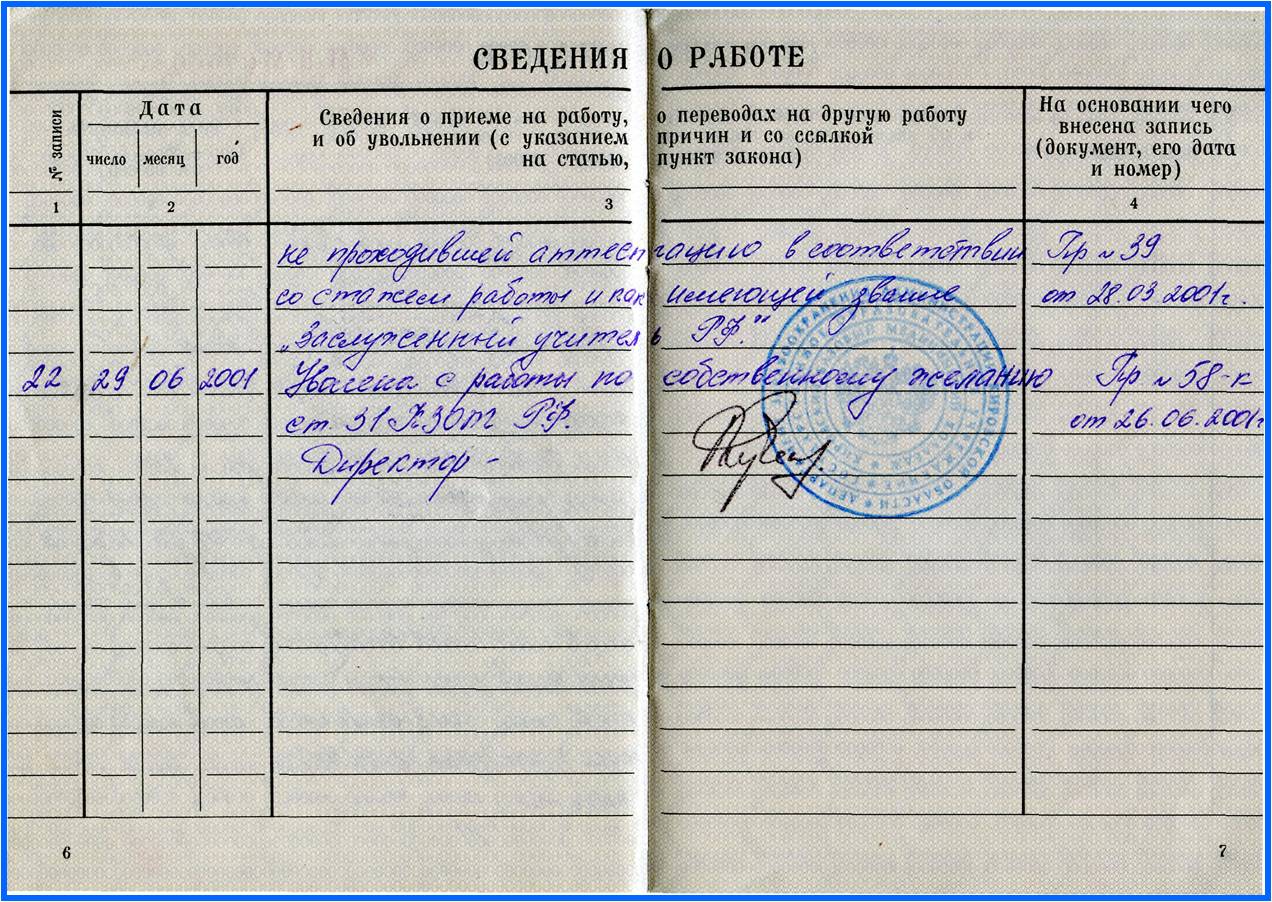 СВЕДЕНИЯ О РАБОТЕ
№ записи
Дата
число месяц год
Сведения о приеме на работу, о переводах на другую работу
и об увольнении (с указанием причин и со ссылкой
на статью, пункт закона)
На основании чего
внесена запись
(документ, его дата
и номер)
1 2 3 4
не проходившей аттестацию в соответствии Пр № 39
со стажем работы и как имеющей звание от 28.03 2001г.
„Заслуженный учитель РФ."
22 29 06 2001 Уволена с работы по собственному желанию Пр № 58-к
ст. 31 КЗОТ РФ. от 26.06.2001г
Директор -
6 7